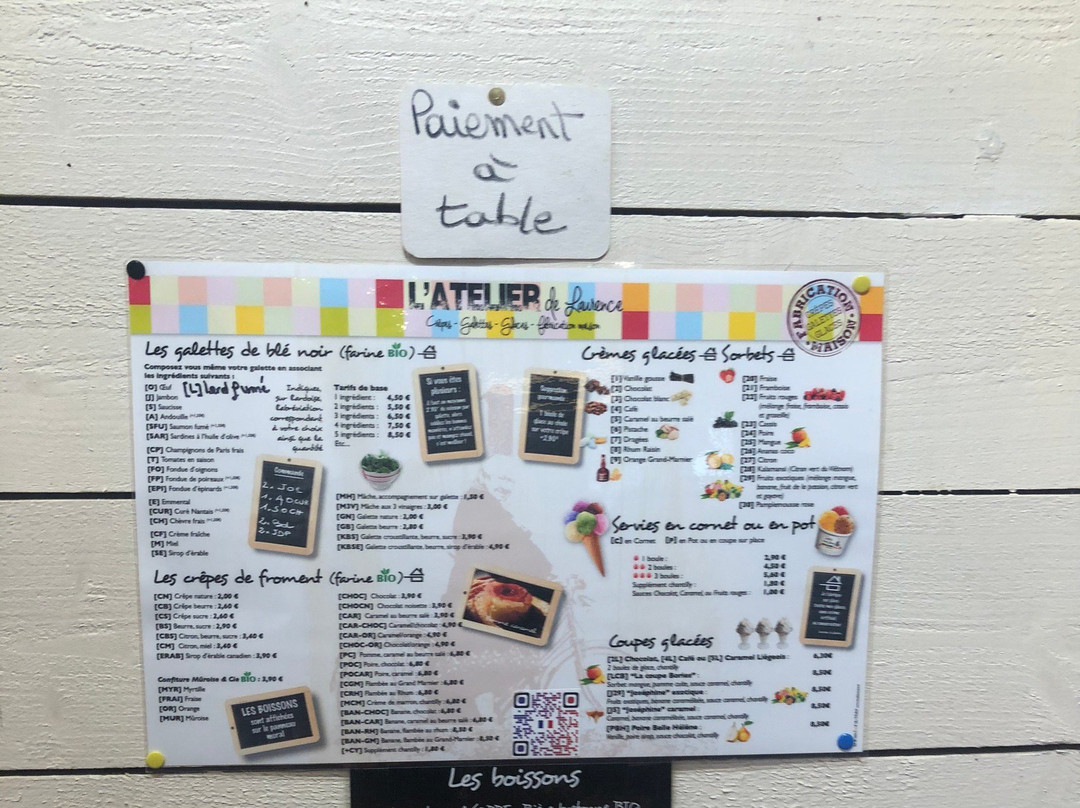 Paiement
à
table
L'ATELIER de Laurence
Crêpes - Galettes - Glaces - fabrication maison
FABRICATION
CRÊPES
GALETTES
GLACES
MAISON
Les galettes de blé noir (farine BIO)
Composez vous même votre galette en associant
les ingrédients suivants :
[O] Œuf
[L] lard fumé
[J] Jambon
[S] Saucisse
[A] Andouille
[SFU] Saumon fumé
[SAR] Sardines à l'huile d'olive
[CP] Champignons de Paris frais
[T] Tomates en saison
[FO] Fondue d'oignons
[FP] Fondue de poireaux
[EPI] Fondue d'épinards
[E] Emmental
[CUR] Curé Nantais
[CH] Chèvre frais
[CF] Crème fraîche
[M] Miel
[SE] Sirop d'érable
Indiquez
sur l'ardoise,
l'abréviation
correspondant
à votre choix
ainsi que la
quantité
Commande
Tarifs de base
1 ingrédient : 4,50 €
2 ingrédients : 5,50 €
3 ingrédients : 6,50 €
4 ingrédients : 7,50 €
5 ingrédients : 8,50 €
Etc...
Si vous êtes
plusieurs :
[MH] Mâche, accompagnement sur galette : 1,50 €
[M3V] Mâche aux 3 vinaigres : 3,00 €
[GN] Galette nature : 2,00 €
[GB] Galette beurre : 2,80 €
[KBS] Galette croustillante, beurre, sucre : 3,90 €
[KBSE] Galette croustillante, beurre, sirop d'érable : 4,90 €
Les crêpes de froment (farine BIO)
[CN] Crêpe nature : 2,00 €
[CB] Crêpe beurre : 2,60 €
[CS] Crêpe sucre : 2,60 €
[BS] Beurre, sucre : 2,90 €
[CBS] Citron, beurre, sucre : 3,40 €
[CM] Citron, miel : 3,40 €
[ERAB] Sirop d'érable canadien : 3,90 €
Confiture Mûroise & Cie BIO : 3,90 €
[MYR] Myrtille
[FRAI] Fraise
[OR] Orange
[MUR] Mûroise
LES BOISSONS
sont affichées
sur le panneau
mural
[CHOC] Chocolat : 3,90 €
[CHOCN] Chocolat noisette : 3,90 €
[CAR] Caramel au beurre salé : 3,90 €
[CAR-CHOC] Caramel/chocolat : 4,90 €
[CAR-OR] Caramel/orange : 4,90 €
[CHOC-OR] Chocolat/orange : 4,90 €
[PC] Pomme, caramel au beurre salé : 6,80 €
[POC] Poire, chocolat : 6,80 €
[POCAR] Poire, caramel : 6,80 €
[CGM] Flambée au Grand Marnier : 6,80 €
[CRH] Flambée au Rhum : 6,80 €
[MCM] Crème de marron, chantilly : 6,80 €
[BAN-CHOC] Banane, chocolat : 6,80 €
[BAN-CAR] Banane, caramel au beurre salé : 6,80 €
[BAN-RH] Banane, flambée au rhum : 8,50 €
[BAN-GM] Banane, flambée au Grand-Marnier : 8,50 €
[+CY] Supplément chantilly : 1,80 €
Crèmes glacées
[1] Vanille gousse
[2] Chocolat
[3] Chocolat blanc
[4] Café
[5] Caramel au beurre salé
[6] Pistache
[7] Dragées
[8] Rhum Raisin
[9] Orange Grand-Marnier
Suggestion
gourmande :
1 boule de
glace au choix
sur votre crêpe
+2,90€
Sorbets
[20] Fraise
[21] Framboise
[22] Fruits rouges
(mélange fraise, framboise, cassis
et groseille)
[23] Cassis
[24] Poire
[25] Mangue
[26] Ananas coco
[27] Citron
[28] Kalamansi (Citron vert du Viêtnam)
[29] Fruits exotiques (mélange mangue,
banane, fruit de la passion, citron vert
et goyave)
[30] Pamplemousse rose
Servies en cornet ou en pot
[C] en Cornet [P] en Pot ou en coupe sur place
1 boule : 2,90 €
2 boules : 4,50 €
3 boules : 5,60 €
Supplément chantilly : 1,80 €
Sauces Chocolat, Caramel, ou Fruits rouges : 1,00 €
Coupes glacées
[2L] Chocolat, [4L] Café ou [5L] Caramel Liégeois : 6,30€
2 boules de glace, chantilly
[LCB] "La coupe Bories" : 8,50€
Sorbet mangue, pomme cuite, sauce caramel, chantilly
[J29] "Joséphine" exotique : 8,50€
Fruits exotiques, banane caramélisée, sauce caramel, chantilly
[J5] "Joséphine" caramel : 8,50€
Caramel, banane caramélisée, sauce caramel, chantilly
[PBH] Poire Belle Hélène : 8,50€
Vanille, poire sirop, sauce chocolat, chantilly
Les boissons